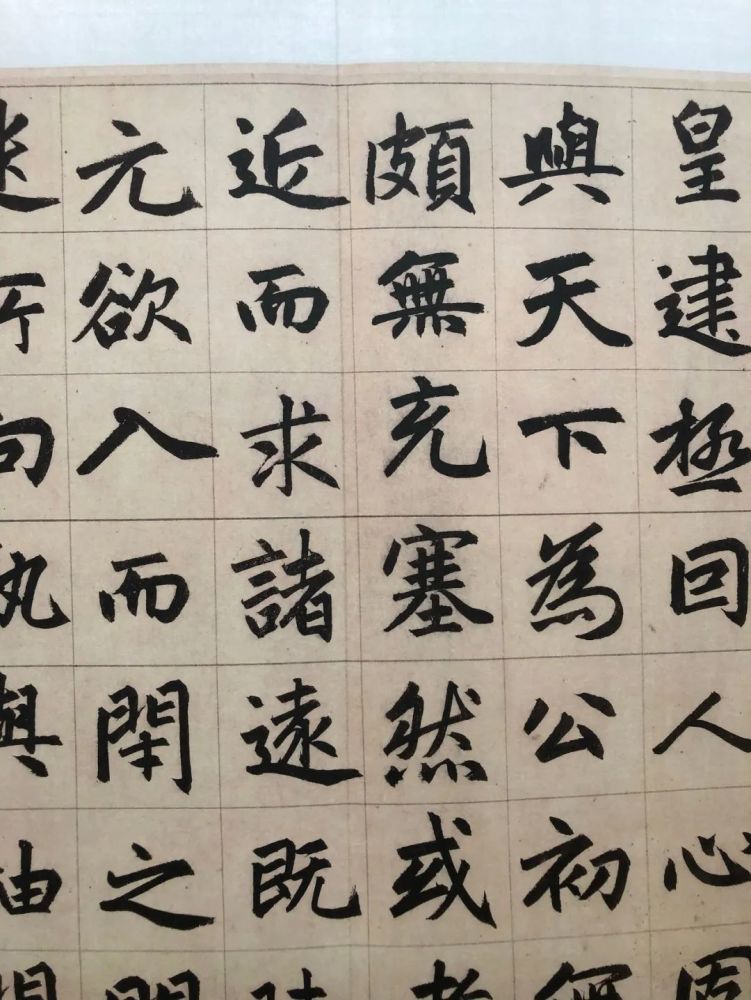 皇建極囙人心
與天下為公初無
頗無充塞然或者
近而求諸遠既
元欲入而閉之